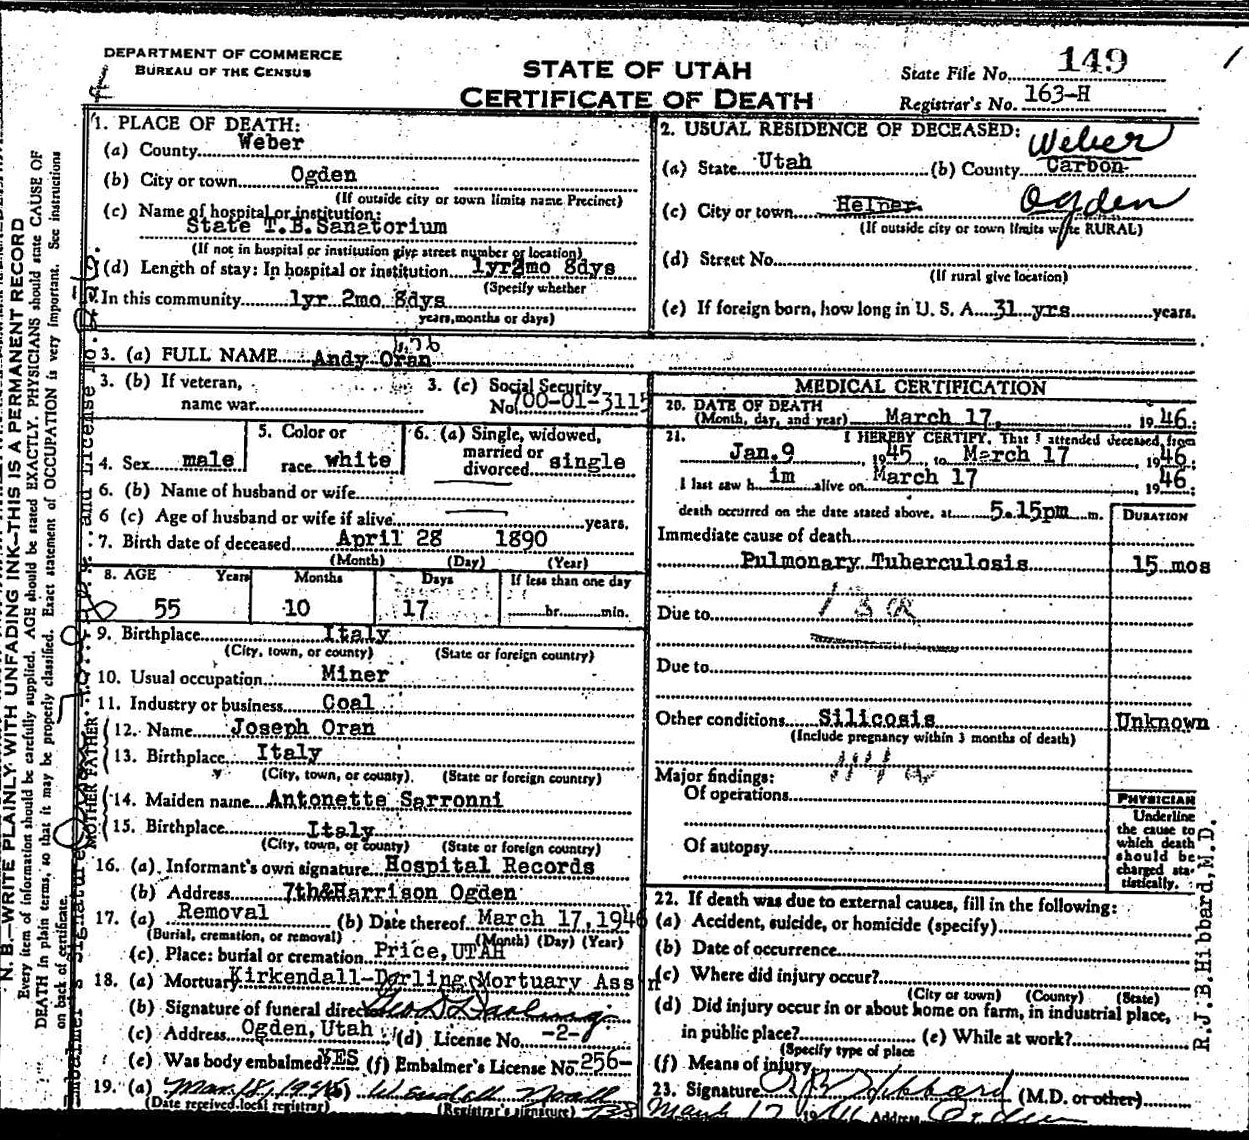 DEPARTMENT OF COMMERCE
BUREAU OF THE CENSUS
STATE OF UTAH
CERTIFICATE OF DEATH
State File No. 149
Registrar's No. 163-H
1. PLACE OF DEATH:
(a) County Weber
(b) City or town Ogden
(If outside city or town limits name Precinct)
(c) Name of hospital or institution:
State T.B.Sanatorium
(If not in hospital or institution give street number or location)
(d) Length of stay: In hospital or institution 1yr2mo 8dys
(Specify whether
In this community 1yr 2mo 8dys
years, months or days)
2. USUAL RESIDENCE OF DECEASED:
Weber
(a) State Utah (b) County Carbon
(c) City or town Helper Ogden
(If outside city or town limits write RURAL)
(d) Street No.
(If rural give location)
(e) If foreign born, how long in U. S. A. 31 yrs years.
3. (a) FULL NAME Andy Oran
3. (b) If veteran,
name war
3. (c) Social Security
No. 700-01-3115
4. Sex male
5. Color or
race white
6. (a) Single, widowed,
married or
divorced single
6. (b) Name of husband or wife
6 (c) Age of husband or wife if alive years.
7. Birth date of deceased April 28 1890
(Month) (Day) (Year)
8. AGE Years Months Days If less than one day
55 10 17 hr. min.
9. Birthplace Italy
(City, town, or county) (State or foreign country)
10. Usual occupation Miner
11. Industry or business Coal
FATHER
12. Name Joseph Oran
13. Birthplace Italy
(City, town, or county) (State or foreign country)
MOTHER
14. Maiden name Antonette Sarronni
15. Birthplace Italy
(City, town, or county) (State or foreign country)
16. (a) Informant's own signature Hospital Records
(b) Address 7th&Harrison Ogden
17. (a) Removal (b) Date thereof March 17,1946
(Burial, cremation, or removal) (Month) (Day) (Year)
(c) Place: burial or cremation Price, UTAH
18. (a) Mortuary Kirkendall-Darling Mortuary Assn
(b) Signature of funeral director
(c) Address Ogden, Utah (d) License No. -2-
(e) Was body embalmed YES (f) Embalmer's License No. -256-
19. (a) Mar. 18, 1946 (b) Wendell Noall
(Date received local registrar) (Registrar's signature)
MEDICAL CERTIFICATION
20. DATE OF DEATH
(Month, day, and year) March 17, 1946.
21. I HEREBY CERTIFY, That I attended deceased from
Jan.9, 1945, to March 17, 1946;
I last saw h im alive on March 17, 1946;
death occurred on the date stated above, at 5.15pm m.
DURATION
Immediate cause of death
Pulmonary Tuberculosis 15 mos
Due to 13a
Due to
Other conditions Silicosis Unknown
(Include pregnancy within 3 months of death)
114a
Major findings:
Of operations
Of autopsy
PHYSICIAN
Underline
the cause to
which death
should be
charged sta-
tistically.
22. If death was due to external causes, fill in the following:
(a) Accident, suicide, or homicide (specify)
(b) Date of occurrence
(c) Where did injury occur?
(City or town) (County) (State)
(d) Did injury occur in or about home on farm, in industrial place,
in public place? (e) While at work?
(Specify type of place
(f) Means of injury
23. Signature R J B Hibbard (M.D. or other)
March 17 Address Ogden
R.J.B.Hibbard,M.D.
N. B.—WRITE PLAINLY, WITH UNFADING INK—THIS IS A PERMANENT RECORD
Every item of information should be carefully supplied. AGE should be stated EXACTLY. PHYSICIANS should state CAUSE OF
DEATH in plain terms, so that it may be properly classified. Exact statement of OCCUPATION is very important. See instructions
on back of certificate.
Embalmer's Signature and License No.